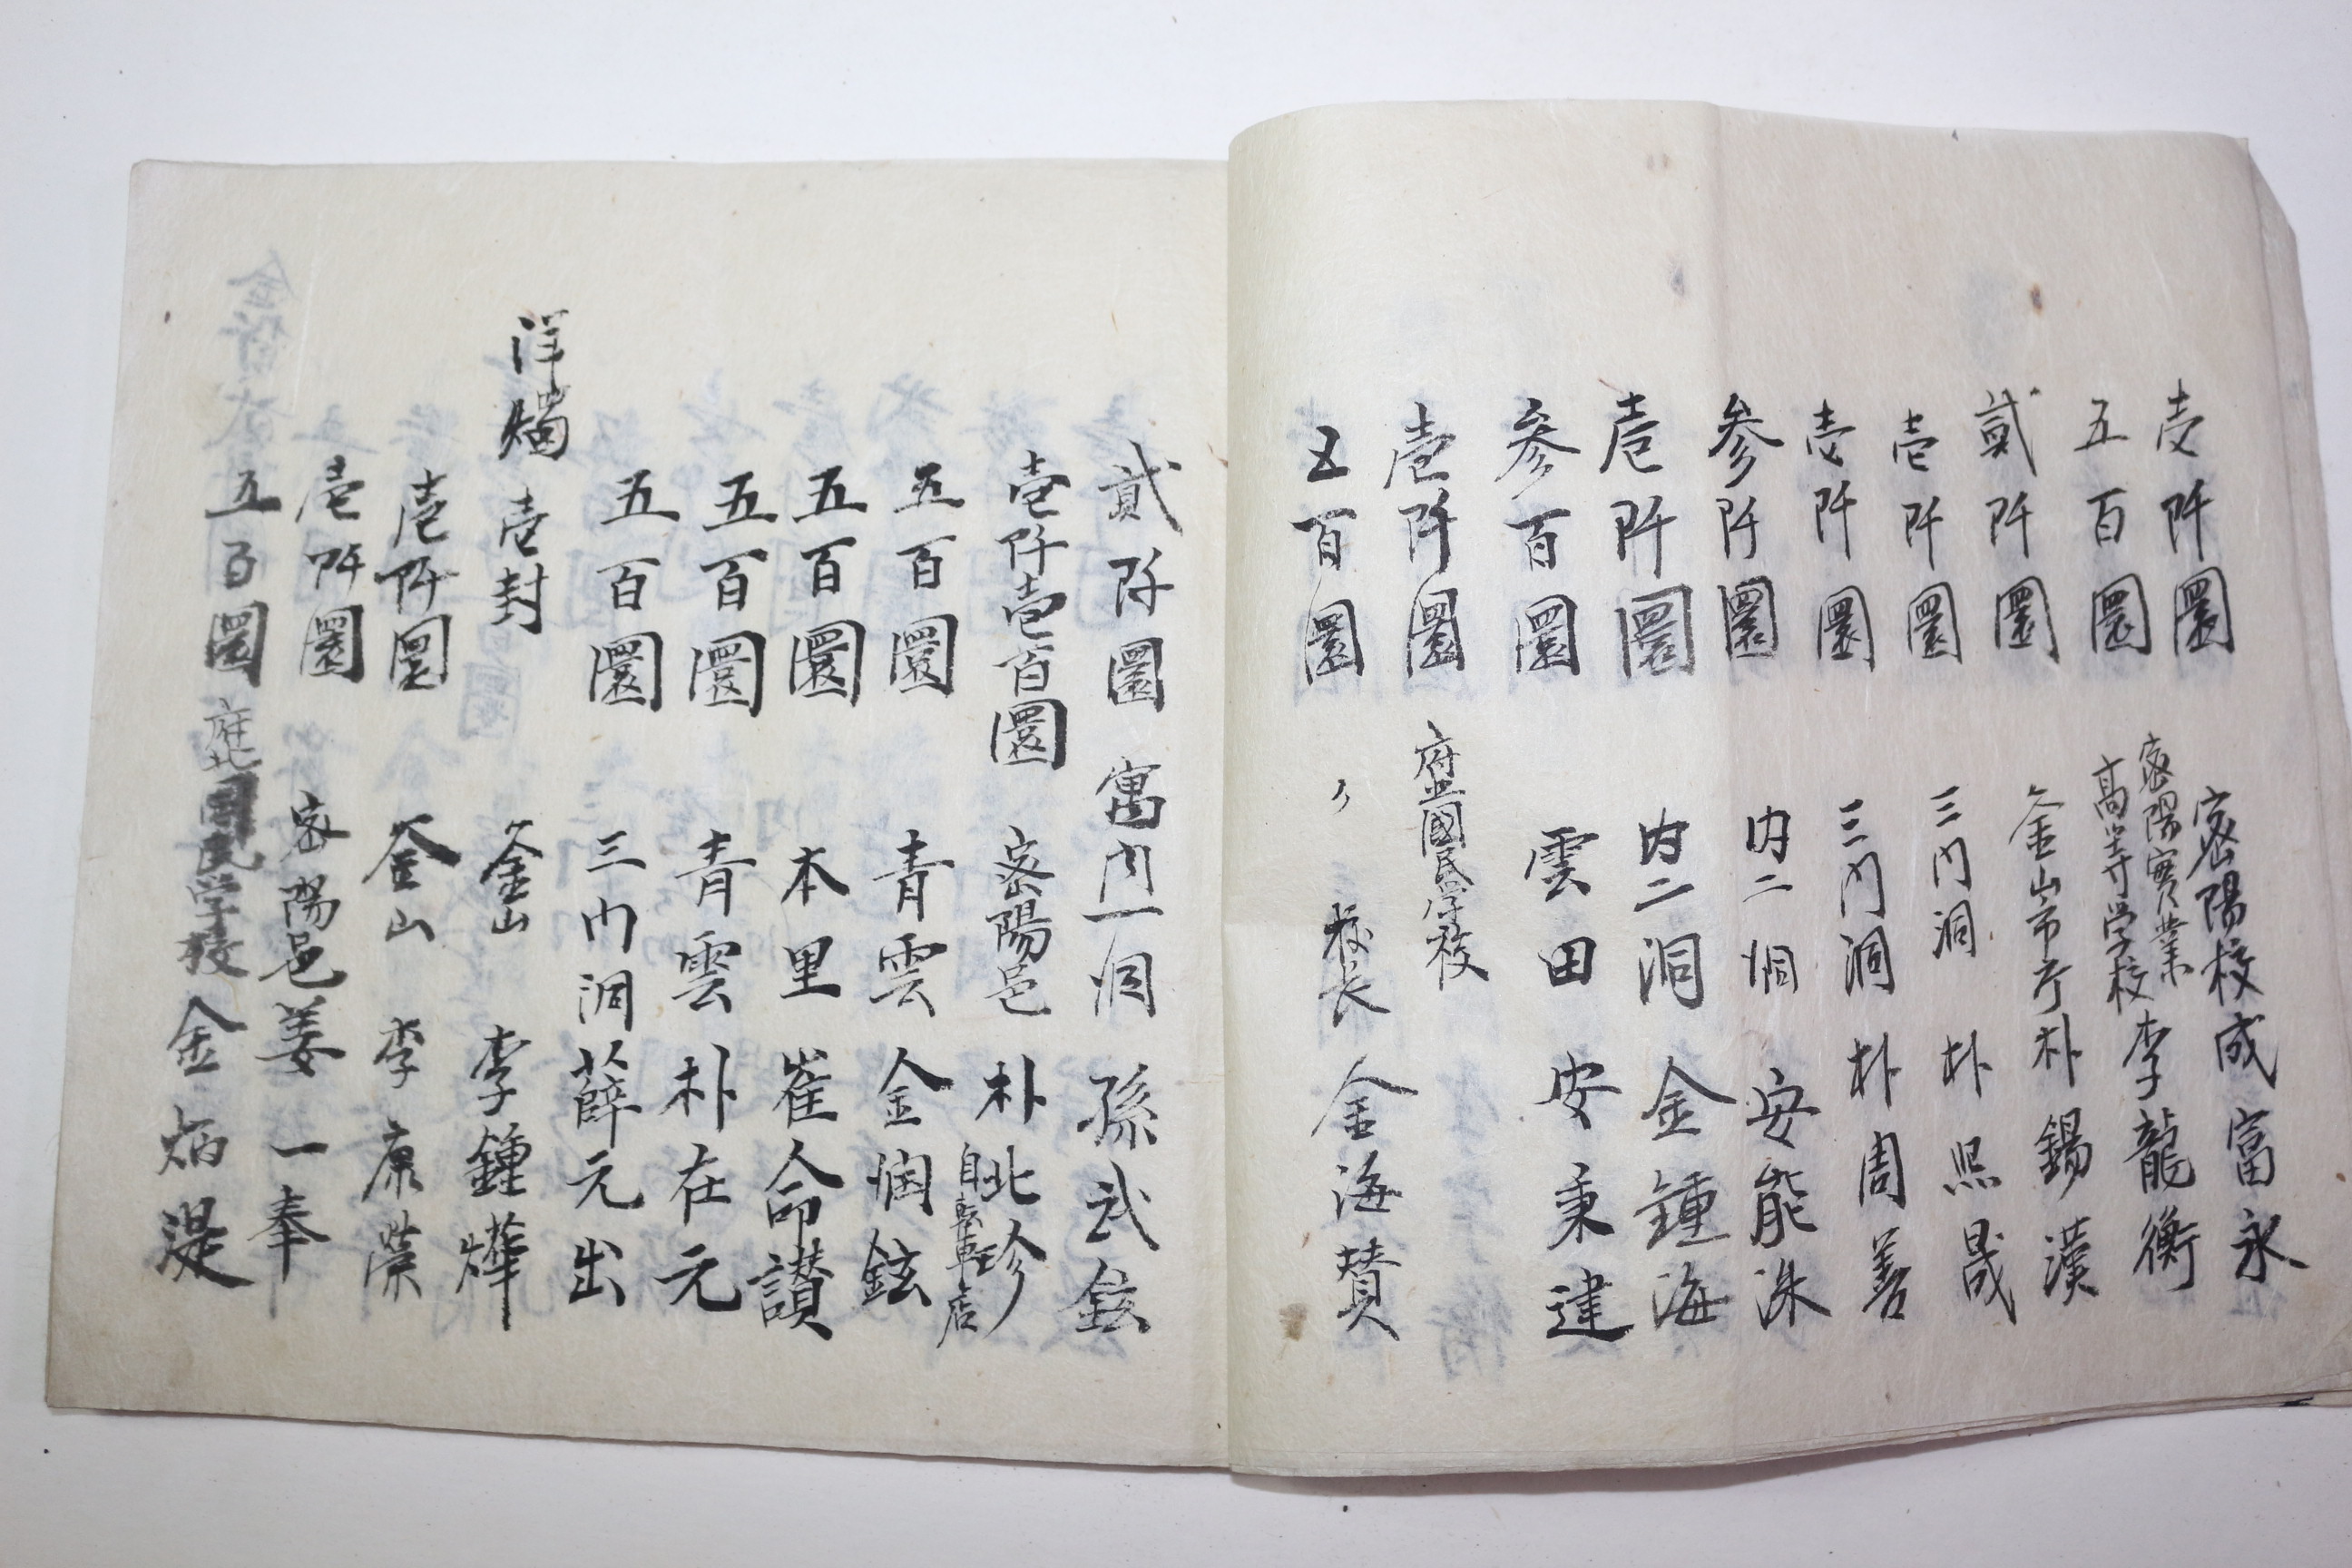 壱阡圜 密陽校 成富永
五百圜 密陽實業高等学校 李龍衡
貳阡圜 釜山市庁 朴錫漢
壱阡圜 三门洞 朴熙晟
壱阡圜 三门洞 朴周善
参阡圜 内二洞 安能洙
壱阡圜 内二洞 金鍾海
参百圜 雲田 安秉建
壱阡圜 府北國民学校
五百圜 〃 校长 金海賛
貳阡圜 寓内一洞 孫武鉉
壱阡壱百圜 密陽邑 朴兆珍 自転車店
五百圜 青雲 金润鉉
五百圜 本里 崔命讃
五百圜 青雲 朴在元
五百圜 三门洞 薛元出
洋燭壱封 釜山 李鍾燁
壱阡圜 釜山 李康榮
壱阡圜 密陽邑 姜一奉
五百圜 府北國民学校 金炳湜